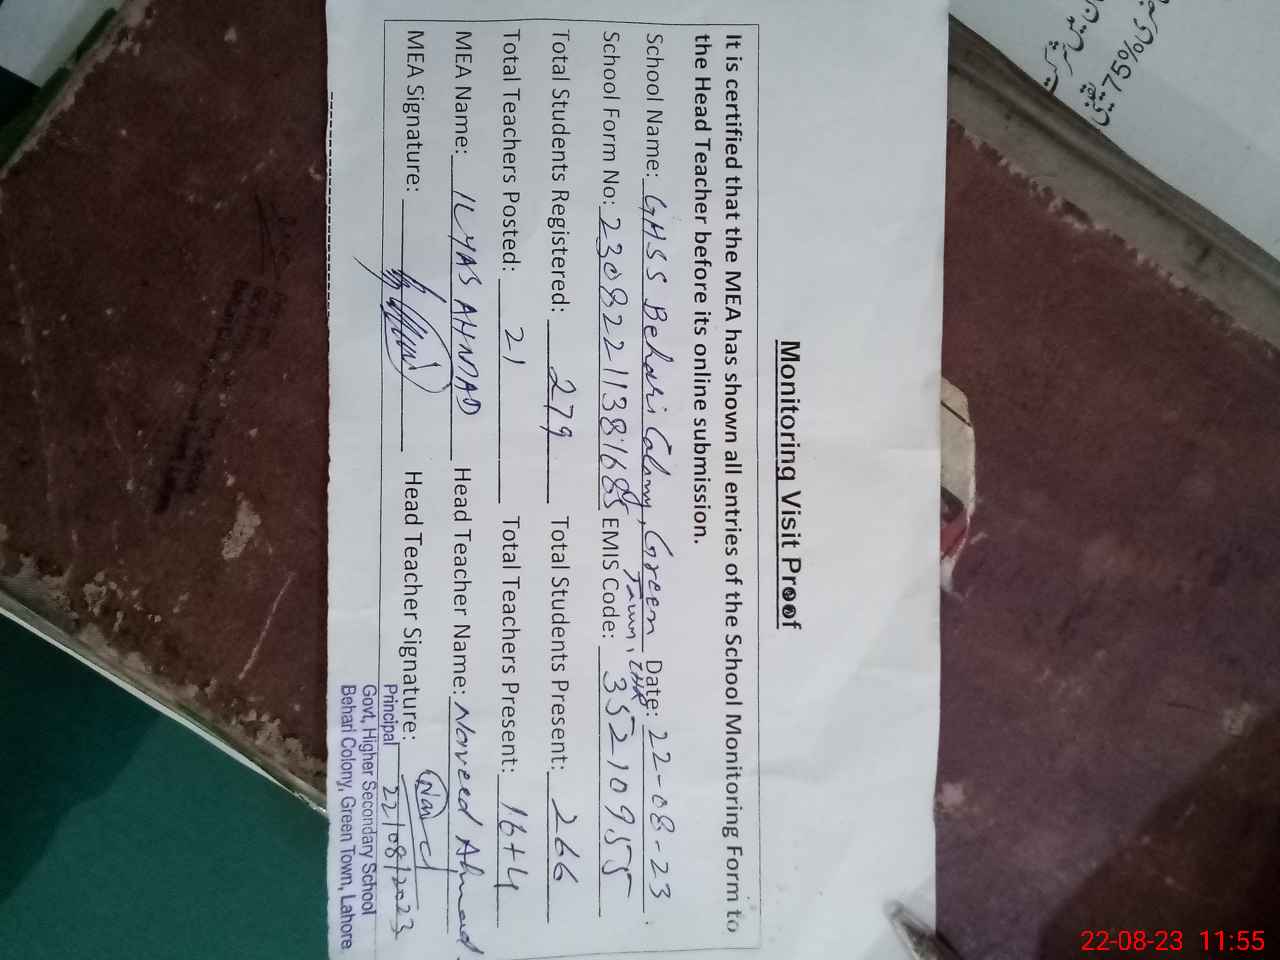 Monitoring Visit Proof
It is certified that the MEA has shown all entries of the School Monitoring Form to
the Head Teacher before its online submission.
School Name: GHSS Behari Colony, Green Town, LHR Date: 22-08-23
School Form No: EMIS Code: 35210955
Total Students Registered: 279 Total Students Present: 266
Total Teachers Posted: 21 Total Teachers Present: 16+4
MEA Name: ILYAS AHMAD Head Teacher Name: Naveed Ahmad
MEA Signature: Head Teacher Signature:
22/08/2023
Principal
Govt, Higher Secondary School
Behari Colony, Green Town, Lahore
75%
22-08-23 11:55